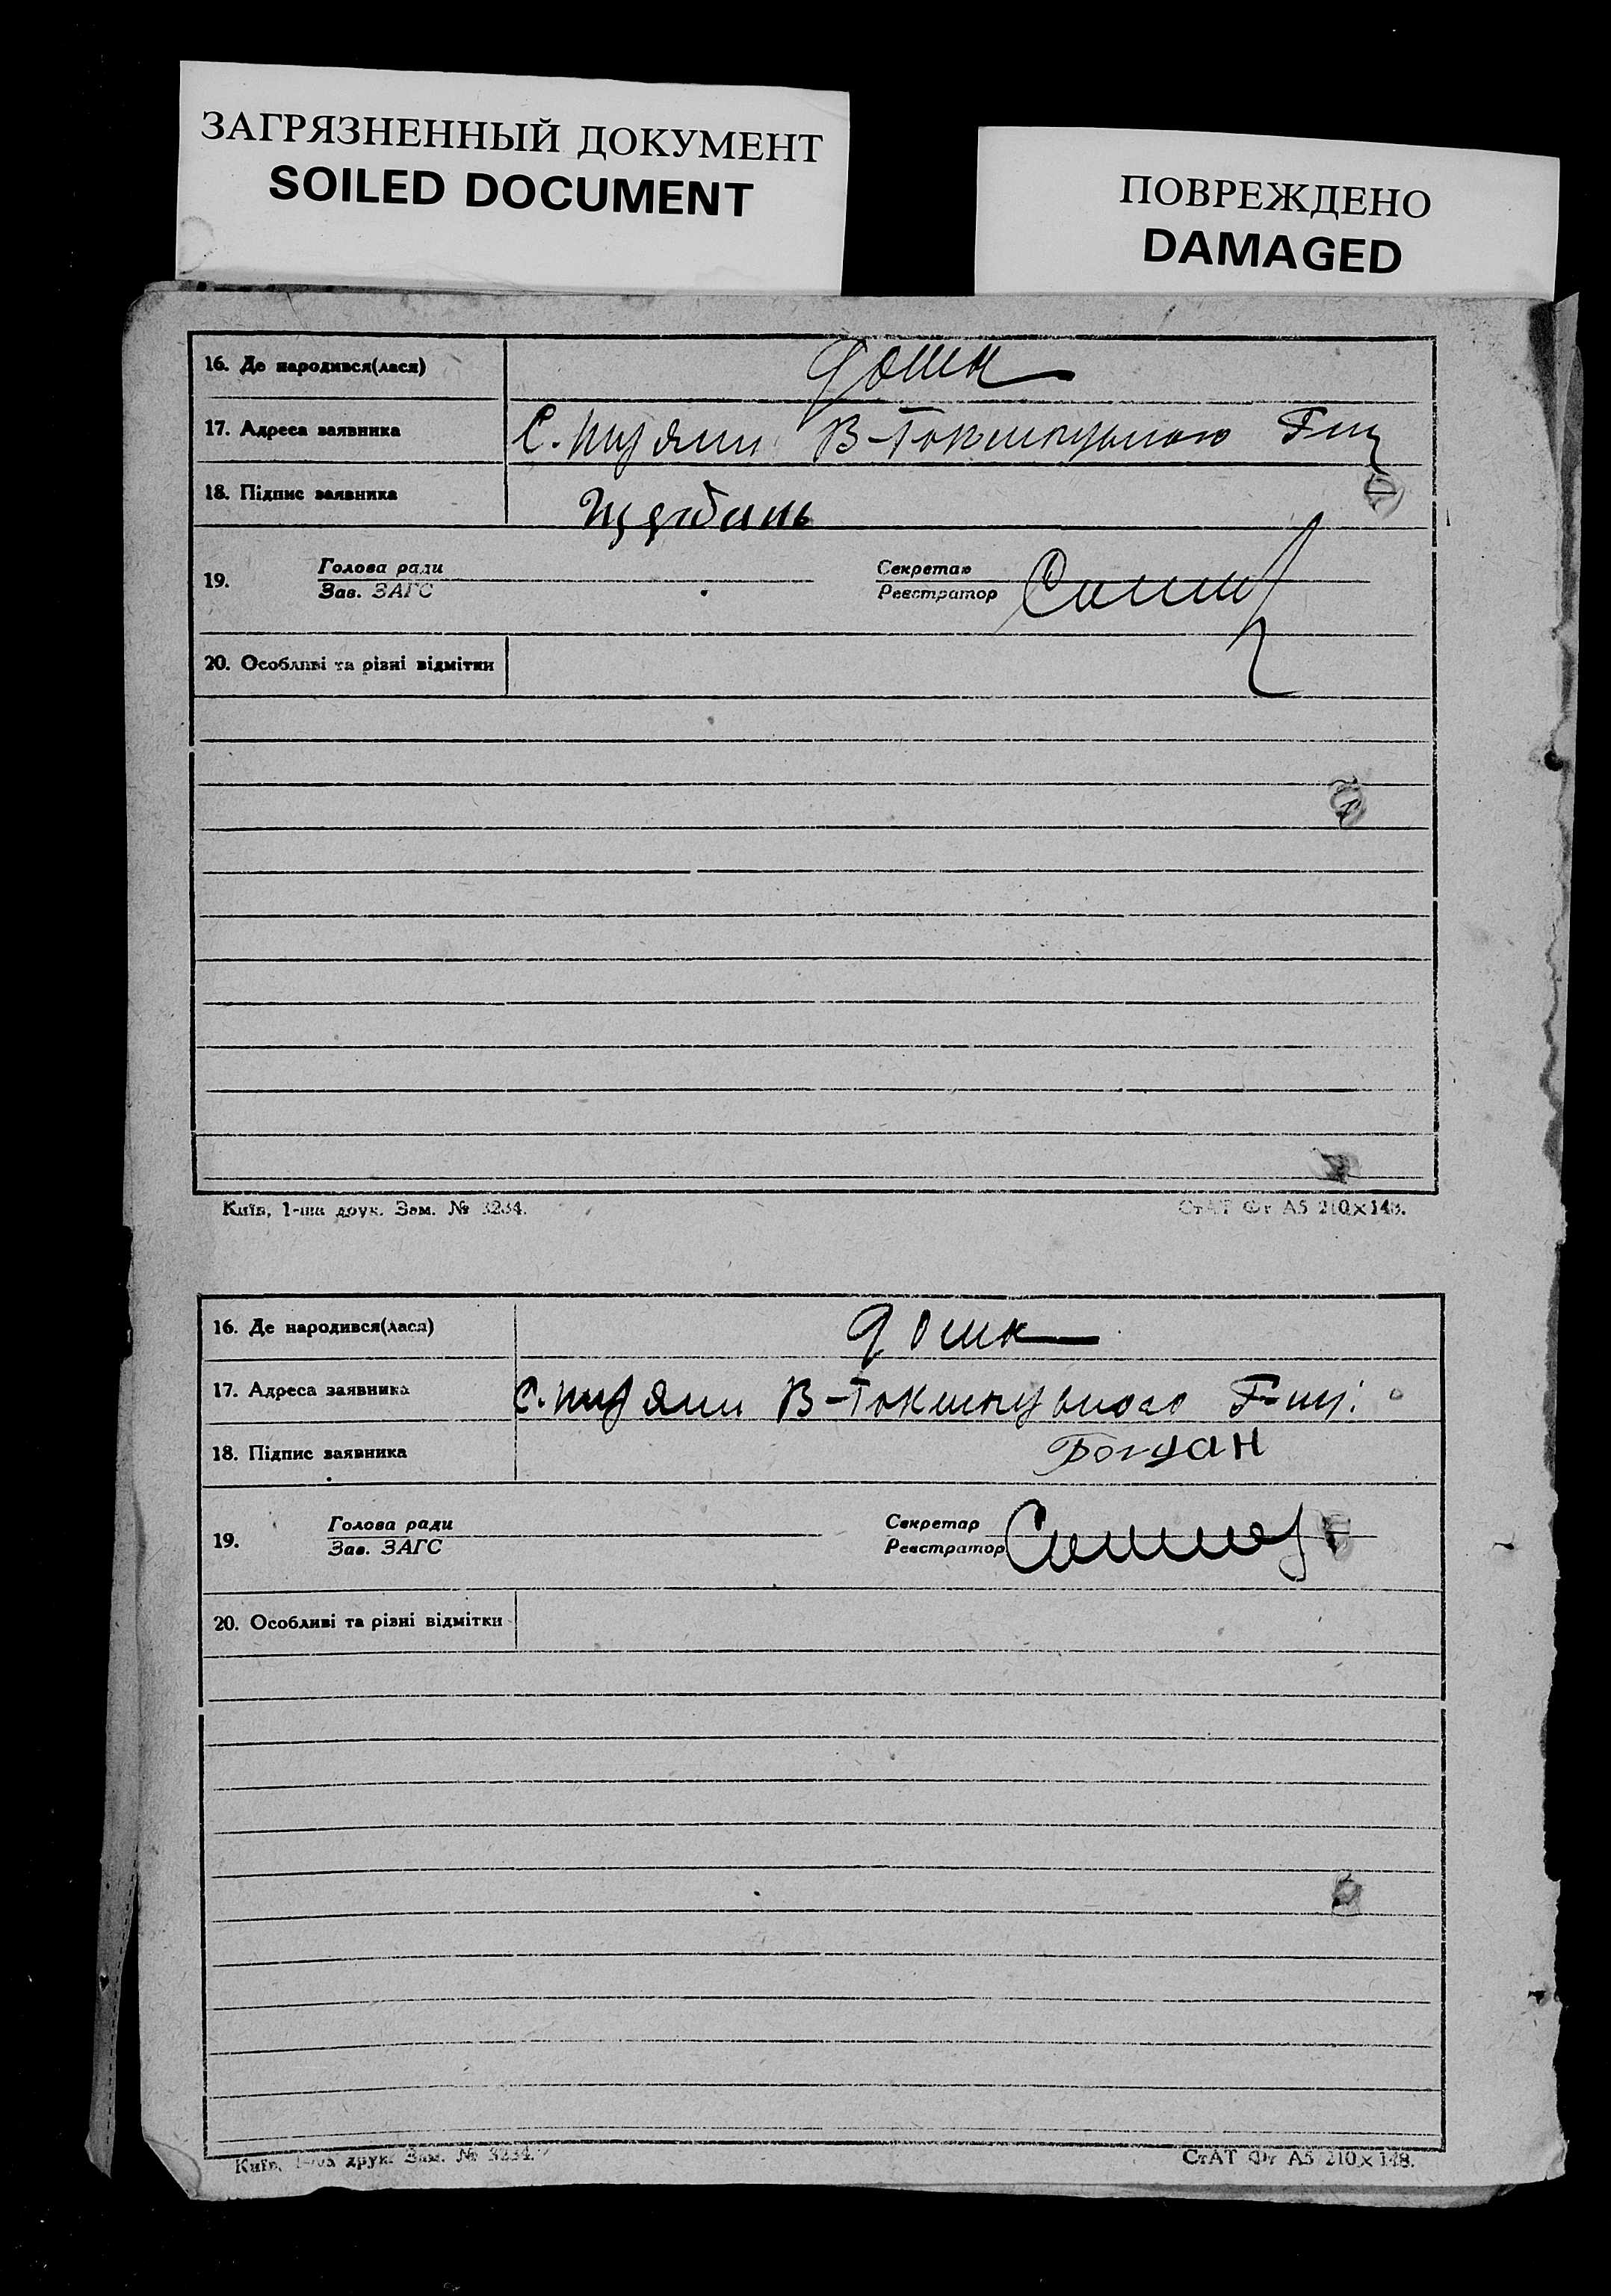 ЗАГРЯЗНЕННЫЙ ДОКУМЕНТ
SOILED DOCUMENT
ПОВРЕЖДЕНО
DAMAGED
16. Де народився(лася) дома
17. Адреса заявника С.
18. Підпис заявника
19. Голова ради Секретар
Зав. ЗАГС Реєстратор
20. Особливі та різні відмітки
Київ, 1-ша друк. Зам. № 3234. СтАТ Фт А5 210×148.
16. Де народився(лася) дома
17. Адреса заявника С.
18. Підпис заявника Богдан
19. Голова ради Секретар
Зав. ЗАГС Реєстратор
20. Особливі та різні відмітки
Київ, 1-ша друк. Зам. № 3234. СтАТ Фт А5 210×148.